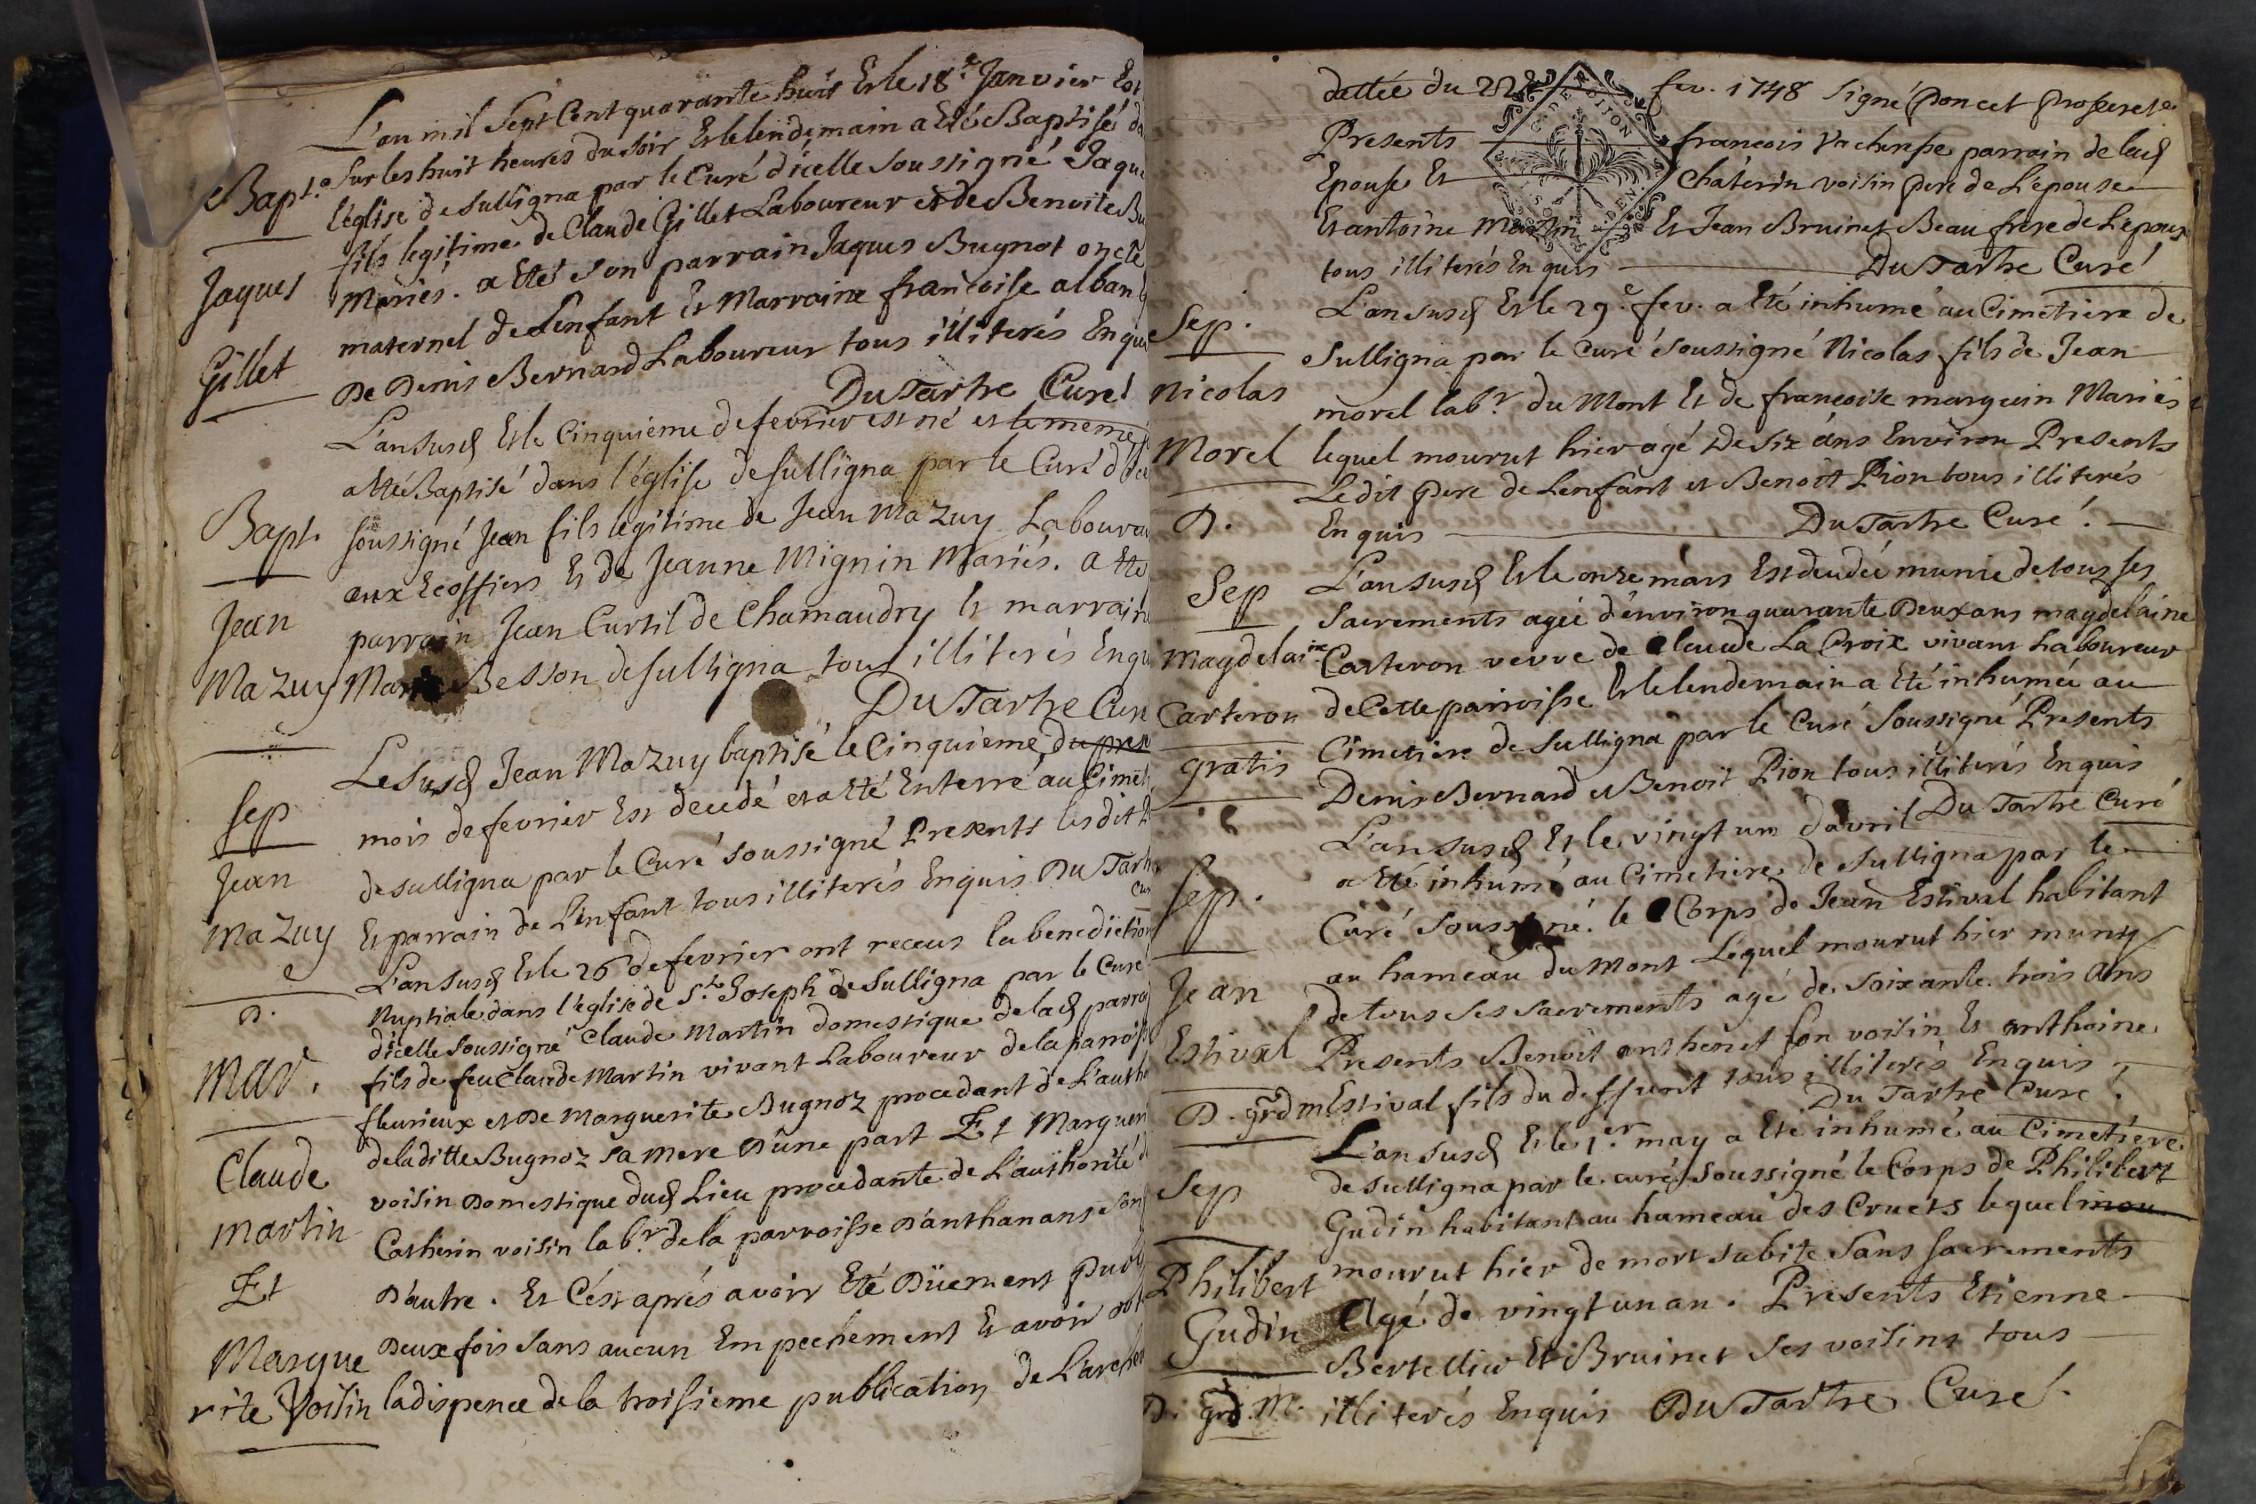 L'an mil Sept Cent quarante huit Et le 18.e Janvier Est
Bapt.e Sur les huit heures du soir Et le lendemain a Eté Baptisé da
l'église de Sulligna par le Curé d'icelle Soussigné Jaque
fils legitime de Claude Gillet Laboureur et de Benoite Bu
Jaques Mariés. a Eté son parrain Jaques Bugnot oncle
maternel de L'enfant Et Marraine francoise alban
Gillet De Denis Bernard Laboureur tous illiterés Enqui
DuTartre Curé
L'an susd Et le Cinquieme de fevrier est né et le meme
a Eté Baptisé dans l'église de Sulligna par le Curé d'ice
Bapt. soussigné Jean fils légitime de Jean Mazuy Laboureu
aux Ecoffiers Et de Jeanne Mignin Mariés. a Eté
Jean parrain Jean Curtil de Chamandry Et marraine
Mazuy Marie Besson de Sulligna tous illiterés Enqu
DuTartre Cure
Le susd Jean Mazuy baptisé le Cinquieme du prese
Sep mois de fevrier Est decédé et a Eté Enterré au Cimeti
Jean de sulligna par le Curé soussigné Presents lesdit
Mazuy Et parrain de L'enfant tous illiterés Enquis DuTartre
Cur
L'an susd Et le 26 de fevrier ont receus la benediction
D. Nuptiale dans l'église de St. Joseph de Sulligna par le Curé
d'icelle soussigné Claude Martin domestique de lad parroi
Mar. fils de feu Claude Martin vivant Laboureur de la parroiss
fleurieux et De Marguerite Bugnoz procedant de L'autho
Claude de laditte Bugnoz Sa Mere D'une part Et Marguer
voisin Domestique dud Lieu procedante de L'authorité d
Martin Catherin voisin lab.r de la parroisse D'anthanans son
Et D'autre. Et C'est aprés avoir Eté Düement publi
Deux fois sans aucun Empechement Et avoir obt
Margue
rite Voisin la dispence de la troisieme publication de L'areche
dattée du 22 fev. 1748 Signé Poncet
Presents francois Vachresse parrain de lad
Epouse Et Chaterin voisin pere de L'épouse
Et antoine Martin Et Jean Bruinet Beau frere de L'epoux
tous illiterés Enquis DuTartre Curé
Sep. L'an susd Et le 29.e fev. a Eté inhumé au Cimetiere de
Sulligna par le Curé Soussigné Nicolas fils de Jean
Nicolas morel lab.r du Mont Et de francoise marguin Mariés
Morel lequel mourut hier agé De six ans Environ Presents
Le dit pere de Lenfant et Benoit Pion tous illiterés
D. Enquis DuTartre Curé.
Sep L'an susd Et le onze mars Est decedée munie de tous ses
Sacrements agée d'environ quarante Deux ans magdelaine
Magdelaine Carteron veuve de Claude La Croix vivant Laboureur
de Cette parroisse Et le lendemain a Eté inhumée au
Carteron Cimetiere de Sulligna par le Curé Soussigné Presents
gratis Denis Bernard et Benoit Pion tous illiterés Enquis
DuTartre Curé
L'an susd Et le vingt un d'avril
Sep. a Eté inhumé au Cimetiere de Sulligna par le
Curé Soussigné. le Corps de Jean Estival habitant
Jean au hameau du Mont Lequel mourut hier muny
de tous ses sacrements agé de soixante trois ans
Estival Presents Benoit onthenet son voisin Et anthoine
D. grd m Estival fils du deffunt tous illiterés Enquis
DuTartre Curé.
L'an susd Et le 1.er may a Eté inhumé au Cimetiére
Sep de Sulligna par le curé soussigné le Corps de Philibert
Gudin habitant au hameau des Cruets lequel mou
Philibert mourut hier de mort subite Sans sacrements
Gudin Agé de vingt un an. Presents Etienne
Bertellier Et Bruinet Ses voisins tous
D. grd. M. illiterés Enquis DuTartre Curé.